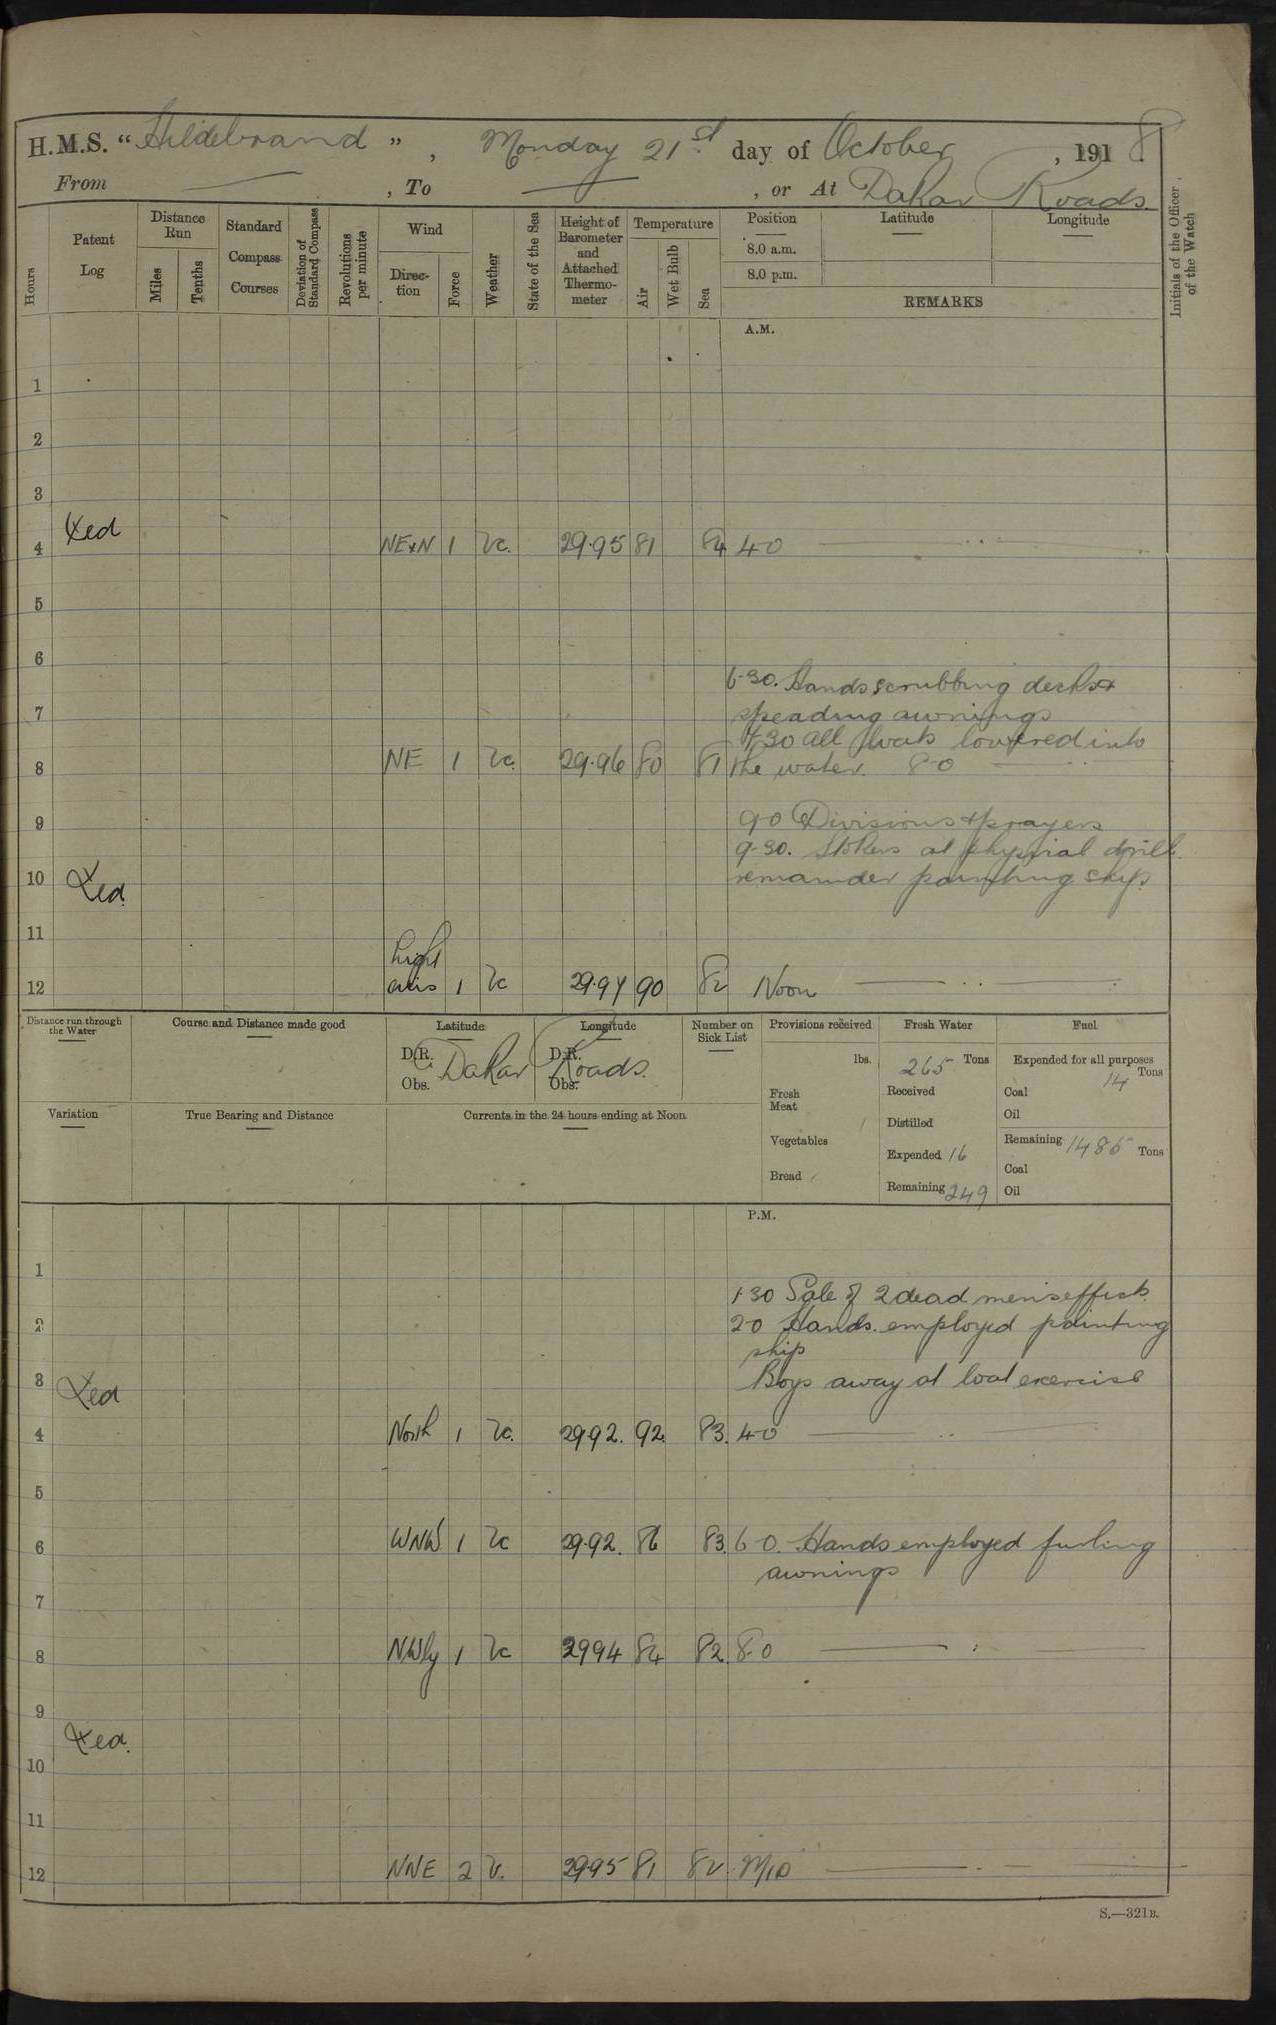 H.M.S. "Hildebrand", Monday 21st day of October, 1918.
From — , To — , or At Dakar Roads.
Hours
Patent Log
Distance Run
Miles
Tenths
Standard Compass Courses
Deviation of Standard Compass
Revolutions per minute
Wind
Direction
Force
Weather
State of the Sea
Height of Barometer and Attached Thermometer
Temperature
Air
Wet Bulb
Sea
Position
8.0 a.m.
8.0 p.m.
Latitude
Longitude
REMARKS
Initials of the Officer of the Watch
A.M.
1
2
3
4 NE x N 1 29.95 81 84 4-0
5
6
6-30. Hands scrubbing decks &
7 speading awnings
7.30 all boats lowered into
8 NE 1 29.96 80 81 the water. 8-0
9 9-0 Divisions & prayers
9-30. Stokers at physical drill
10 remainder painting ship.
11
12 Light airs 1 29.97 90 82 Noon
Distance run through the Water
Course and Distance made good
Latitude
D.R.
Obs.
Longitude
D.R.
Obs.
Dakar Roads.
Number on Sick List
Provisions received
lbs.
Fresh Meat
Vegetables
Bread
Fresh Water
265 Tons
Received
Distilled
Expended 16
Remaining 249
Fuel
Expended for all purposes
14 Tons
Coal
Oil
Remaining 1485 Tons
Coal
Oil
Variation
True Bearing and Distance
Currents in the 24 hours ending at Noon
P.M.
1
1 30 Sale of 2 dead men's effects.
2 2-0 Hands employed painting
ship
3 Boys away at boat exercise
4 North 1 29.92. 92. 83. 4-0
5
6 WNW 1 29.92. 86 83. 6-0. Hands employed furling
awnings
7
8 NWly 1 2994 84 82. 8-0
9
10
11
12 NNE 2 29.95 81 82 Mid
S.—321B.